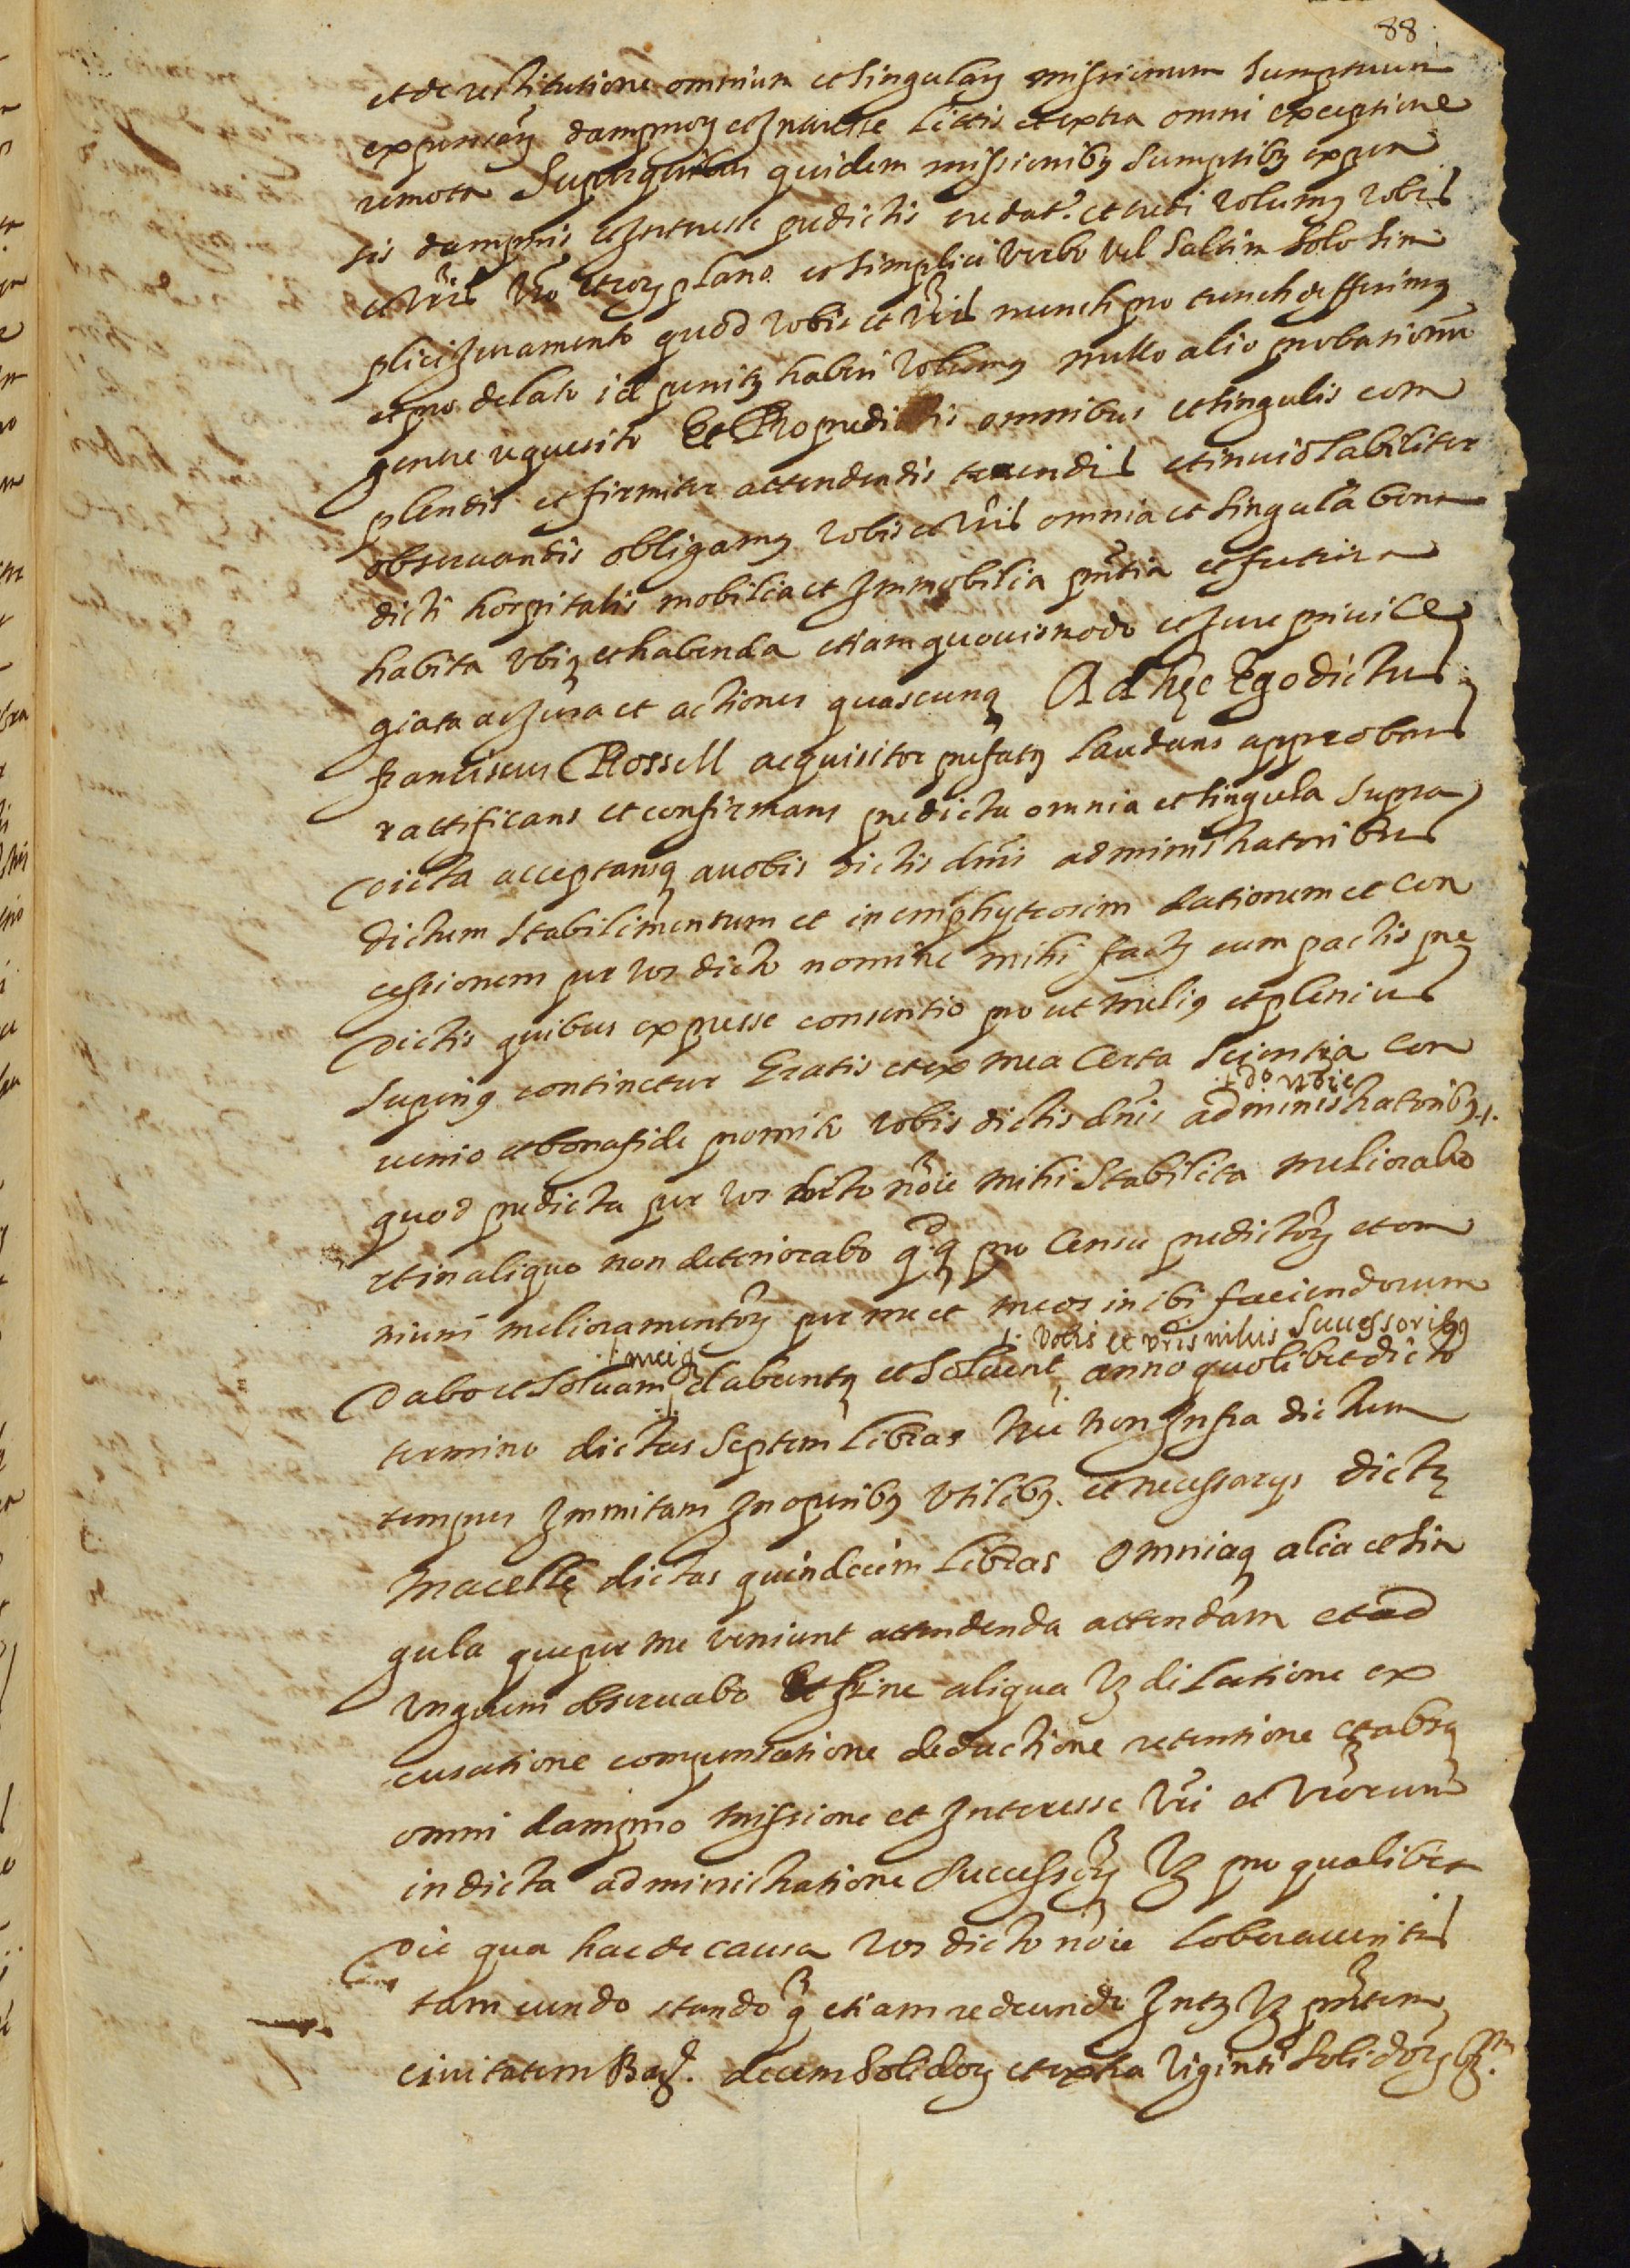 88
et de restitutione omnium et singular missionum sumptuum
expensar dampnor et Interesse littis et extra omni exceptione
remota Super quibus quidem missionibz sumptibz expen
sis dampnis et Interesse predictis credat.r et credi volumq vobis
et vris vro et eor plano et simplici verbo vel saltim solo sim
plici Juramento quod vobis et vris nunch pro tunch defferimq
et pro delato id penitq haberi volumq nullo alio probationu
genere requesito Et Pro predictis omnibus et singulis com
plendis et firmiter attendendis tenendis et inuiolabiliter
obseruandis obligamq vobis et vris omnia et singula bona
dicti hospitalis mobilia et Immobilia pntia et futura
habita vbiq et habenda etiam quouismodo et Jure priuile
giata ac Jura et actiones quascunq Ad hęc Ego dictus
franciscus Rossell acquisitor prefatq laudans approbans
ractificans et confirmans predicta omnia et singula supra
dicta acceptansq a vobis dictis dnis administratoribus
dictum stabilimentum et in emphyteosim dationem et con
cessionem per vos dicto nomine mihi factq cum pactis pre
dictis quibus expresse consentio pro ut meliq et plenius
superiq continetur Gratis et ex mea certa scientia con
.+do noie
uenio et bona fide promito vobis dictis dnis administratoribz +.
quod predicta per vos dicto noie mihi stabilita meliorabo
et in aliquo non deteriorabo q.dq pro censu predictor et om
nium melioramentor per me et meos in ibi faciendorum
.+ meiq +. vobis et vris in his successoribq
dabo et soluam dabuntq et soluent anno quolibet dicto
termino dictas septem libras Nec non Infra dictum
tempus Immitam In operibz vtilibz et necessarijs dictę
macellę dictas quindecim libras Omniaq alia et sin
gula que per me veniunt attendenda attendam et ad
vnguem obseruabo Et sine aliqua vz dilatione ex
cusatione compensatione deductione retentione et absq
omni dampno missione et Interesse vri et vrorum
in dicta administratione successor vz pro qualibet
die qua hac de causa vos dicto noie laboraueritis
tam eundo stando q etiam redeundo Intq vz pntem
ciuitatem Bar. decem solidor et extra viginti solidor